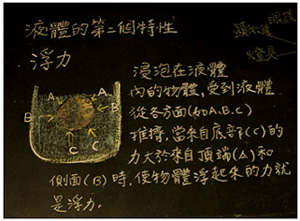 液體的第二個特性
浮力
A
A
B
B
C
C
浸泡在液體
內的物體,受到液體
從各方面(如A.B.C)
推擠,當來自底部(C)的
力大於來自頂端(A)和
側面(B)時,使物體浮起來的力就
是浮力。